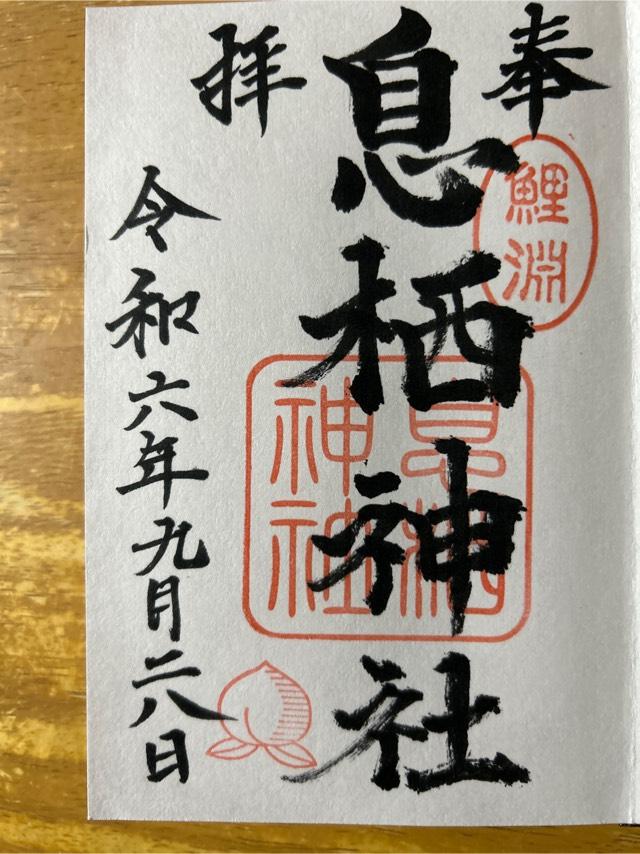 奉
鯉淵
息栖神社
息栖
神社
拝
令和六年九月二八日